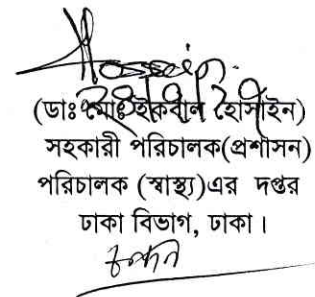 (ডাঃ মোঃ ইকবাল হোসাইন)
সহকারী পরিচালক(প্রশাসন)
পরিচালক (স্বাস্থ্য)এর দপ্তর
ঢাকা বিভাগ, ঢাকা।